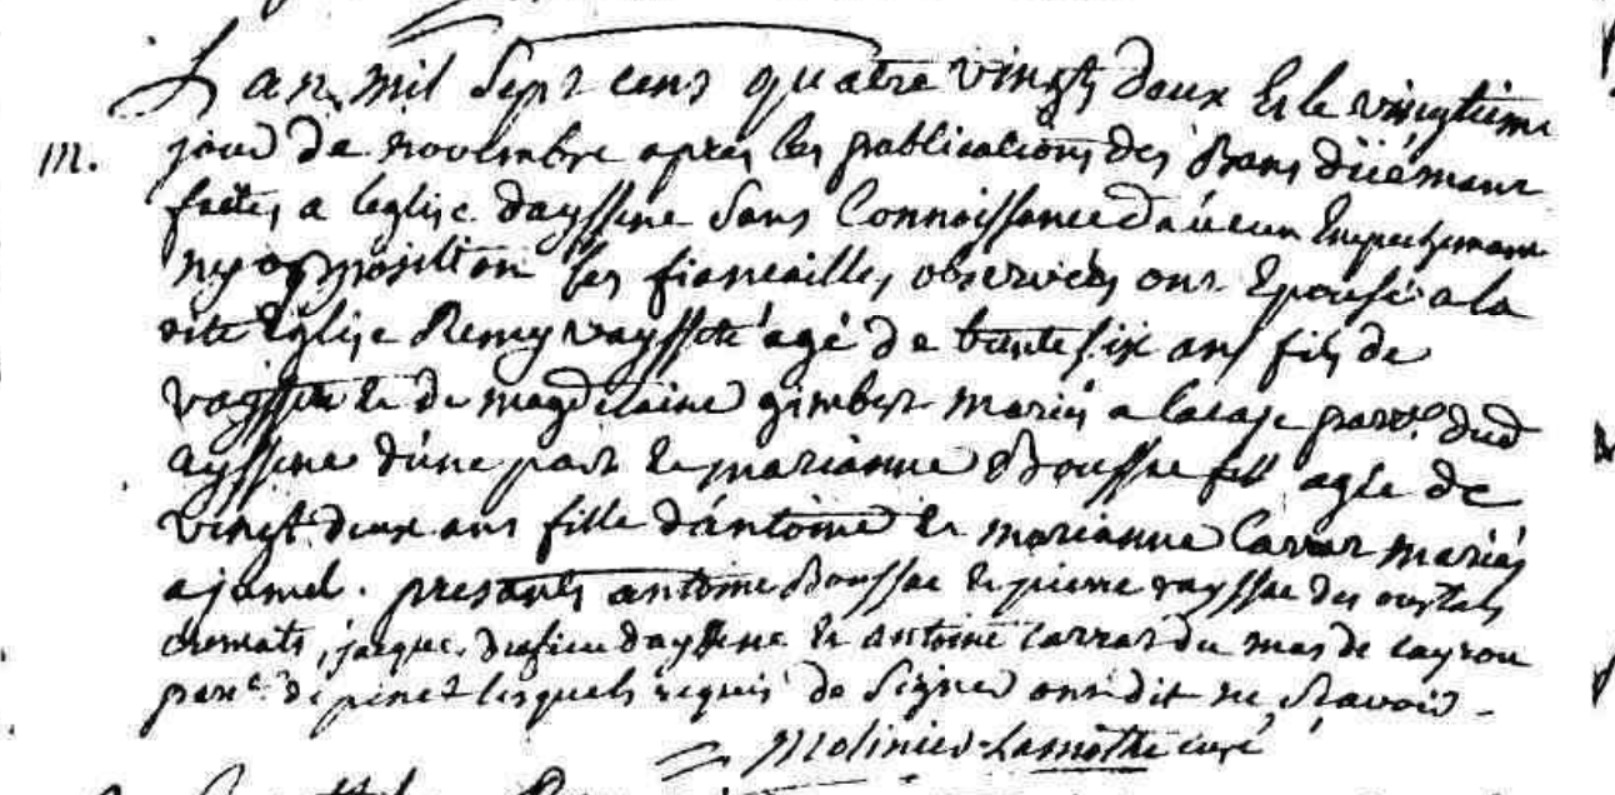 L'an mil sept cens quatre vingts deux Et le vingtieme
m. jour de novembre apres les publications des Bans düément
faites a leglise dayssene sans Connoissance d'aucun Empechement
ny opposition les fiancailles observées ont Epousé a la
dite Eglise Remy vayssete agé de trente six ans fils de
vayssete et de magdelaine gimbert mariés a lacase parr.e dud
ayssene d'une part et marianne Boussac agée de
vingt deux ans fille d'antoine et marianne Carrar mariés
a jamel. presents antoine Boussac et pierre vayssac des oustals
cremats, jacques dayssene et antoine carrar du mas de cayrou
parr.e de pinet lesquels requis de signer ont dit ne sçavoir -
Molinier-Lamothe curé